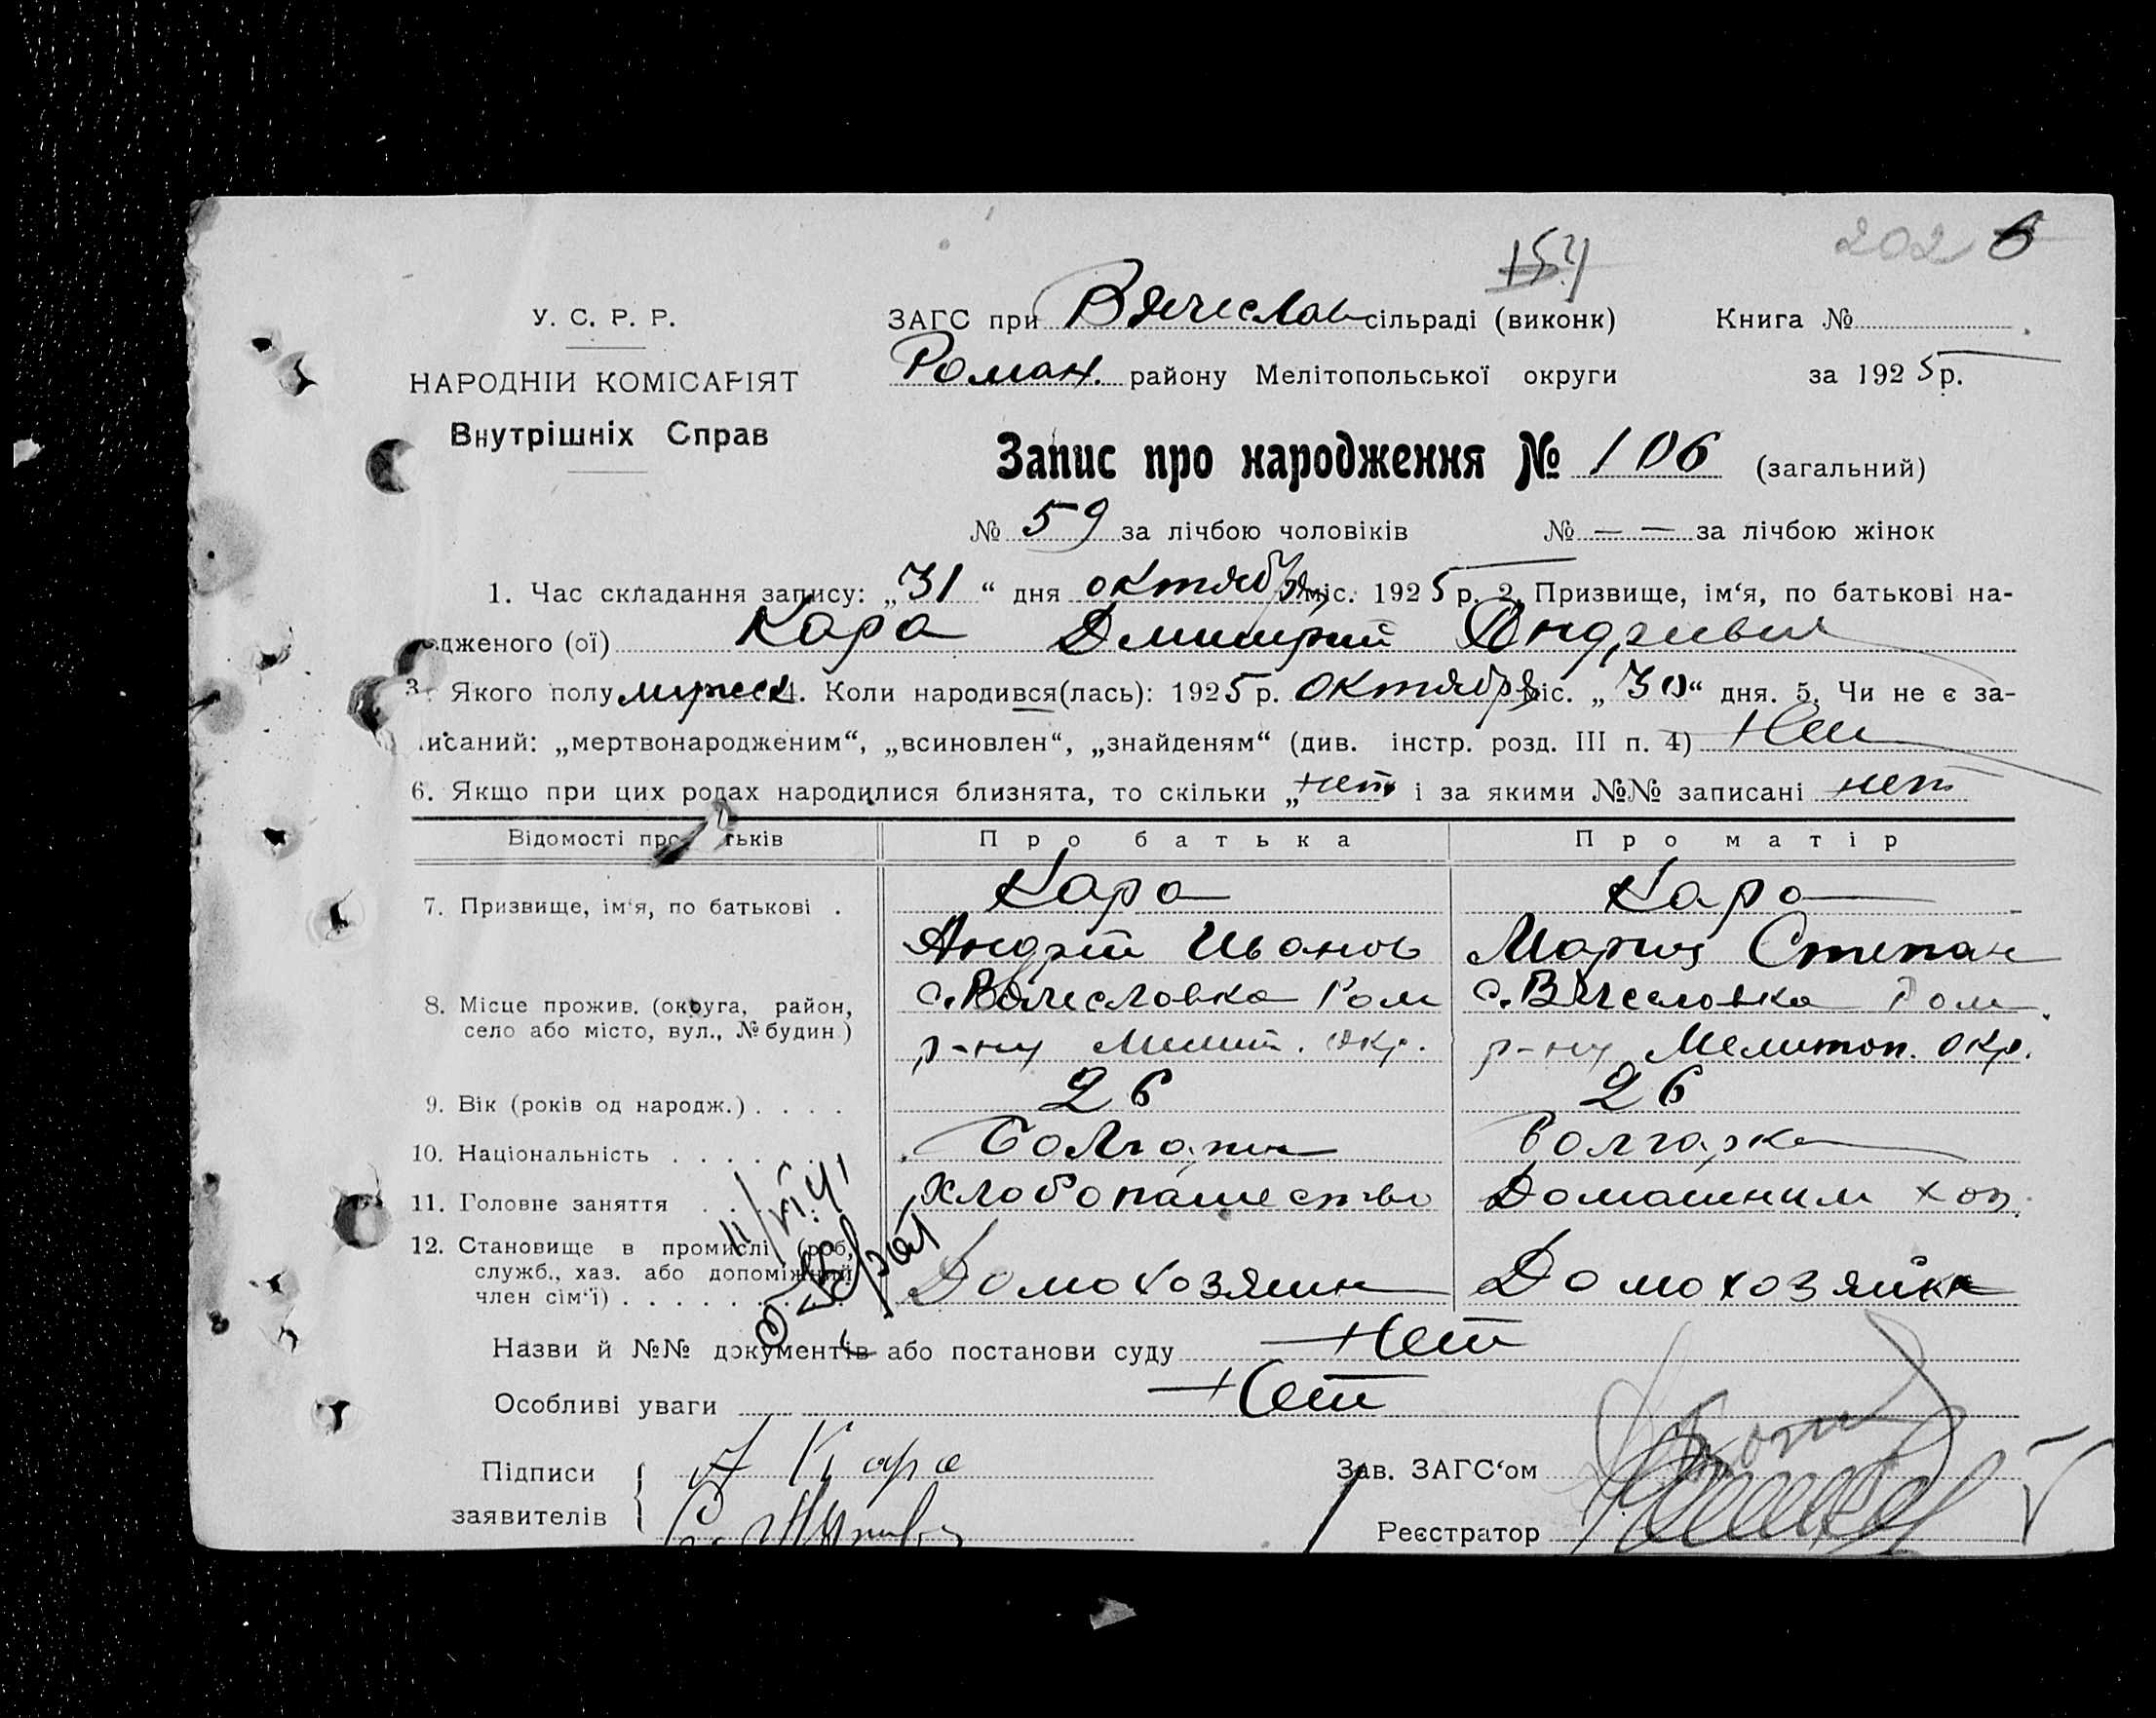 154
202 6
У. С. Р. Р.
ЗАГС при Вячеслав сільраді (виконк) Книга №
Роман. району Мелітопольської округи за 1925 р.
НАРОДНІЙ КОМІСАРІЯТ
Внутрішніх Справ
Запис про народження № 106 (загальний)
№ 59 за лічбою чоловіків № — — за лічбою жінок
1. Час складання запису: „31“ дня октября міс. 1925 р. 2. Призвище, ім‘я, по батькові на-
дженого (ої) Кара Дмитрий Андреевич
3. Якого полу мужск 4. Коли народився(лась): 1925 р. октября міс. „30“ дня. 5. Чи не є за-
исаний: „мертвонародженим“, „всиновлен“, „знайденям“ (див. інстр. розд. III п. 4) Нет
6. Якщо при цих родах народилися близнята, то скільки „нет і за якими №№ записані нет
Відомості про тьків Про батька Про матір
7. Призвище, ім‘я, по батькові . Кара Кара
Андрей Иванов Мария Степан
8. Місце прожив. (округа, район, село або місто, вул., № будин) с. Вячесловка Ром с. Вячесловка Ром
р-ну Мелит. окр. р-ну Мелитоп. окр.
9. Вік (років од народж.) . . . . 26 26
10. Національність . . . . . . Болгарин Болгарка
11. Головне заняття . . . . . Хлобопашество Домашним хоз.
12. Становище в промислі (роб, служб., хаз. або допоміжний член сім‘ї) . . . . . . Домохозяин Домохозяйка
Назви й №№ документів або постанови суду Нет
Особливі уваги Нет
Підписи А Кара Зав. ЗАГС‘ом
заявителів Реєстратор